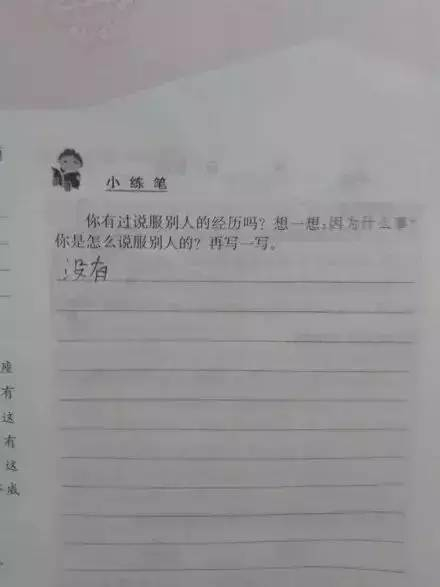 小练笔
你有过说服别人的经历吗？想一想，因为什么事
你是怎么说服别人的？再写一写。
没有
座
有
这
有
这
成